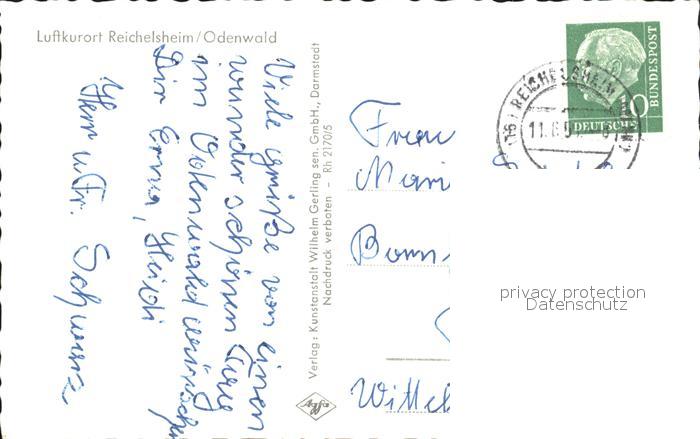 Luftkurort Reichelsheim/Odenwald
Viele Grüße von einer
wunderschönen Tour
im Odenwald wünschen
Dir Erna, Heidi
Herr u. Fr. Schwarz
Verlag: Kunstanstalt Wilhelm Gerling sen. GmbH., Darmstadt
Nachdruck verboten – Rh 2170/5
Frau
Mari
Bonn
Wittel
REICHELSHEIM
DEUTSCHE
BUNDESPOST
privacy protection
Datenschutz